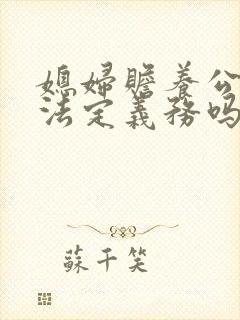 媳婦贍養公
法定義務嗎
蘇千笑